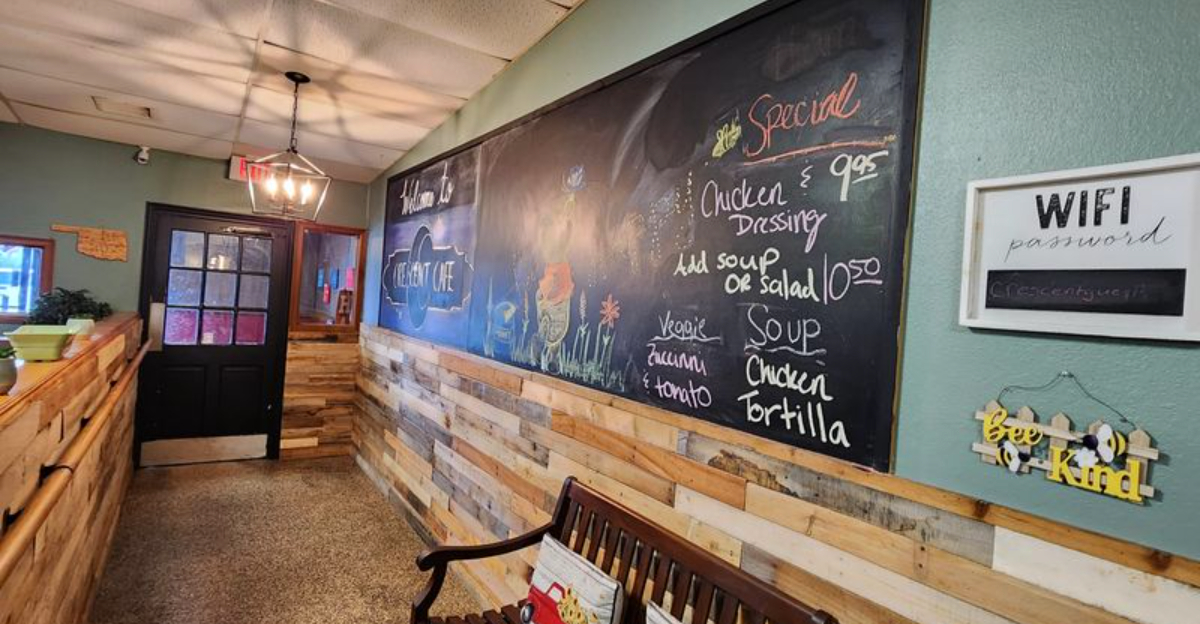 Welcome to
CRESCENT CAFE
Special
Chicken & 9.95
Dressing
Add soup
OR Salad 10.50
Veggie
Zuccinni
& tomato
Soup
Chicken
Tortilla
WIFI
password
Bee
Kind